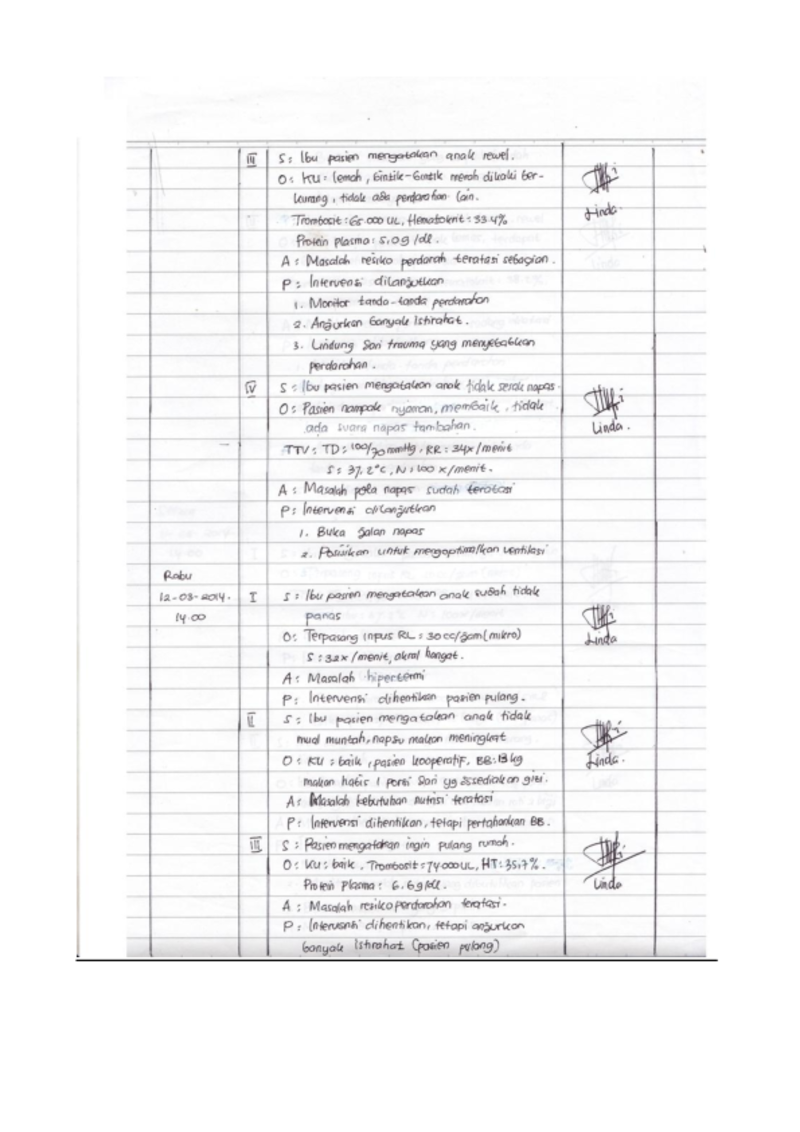 III S : Ibu pasien mengatakan anak rewel.
O : KU : lemah, bintik-bintik merah dikaki ber-
kurang, tidak ada perdarahan lain.
Linda.
Trombosit : 65.000 UL, Hematokrit : 33.4%
Protein plasma : 5,0 g/dl.
A : Masalah resiko perdarah teratasi sebagian.
P : Intervensi dilanjutkan
1. Monitor tanda-tanda perdarahan
2. Anjurkan banyak istirahat.
3. Lindung dari trauma yang menyebabkan
perdarahan.
IV S : Ibu pasien mengatakan anak tidak sesak napas.
O : Pasien nampak nyaman, membaik, tidak
ada suara napas tambahan.
Linda.
TTV : TD : 100/70 mmHg, RR : 34x/menit
S : 37,2°C, N : 100 x/menit.
A : Masalah pola napas sudah teratasi
P : Intervensi dilanjutkan
1. Buka jalan napas
2. Posisikan untuk mengoptimalkan ventilasi
Rabu
12-03-2014. I S : Ibu pasien mengatakan anak sudah tidak
14.00 panas
O : Terpasang inpus RL : 30 cc/jam (mikro)
Linda
S : 32x/menit, akral hangat.
A : Masalah hipertermi
P : Intervensi dihentikan pasien pulang.
II S : Ibu pasien mengatakan anak tidak
mual muntah, napsu makan meningkat
O : KU : baik, pasien kooperatif, BB : 13 kg
Linda.
makan habis 1 porsi dari yg disediakan gizi.
A : Masalah kebutuhan nutrisi teratasi
P : Intervensi dihentikan, tetapi pertahankan BB.
III S : Pasien mengatakan ingin pulang rumah.
O : KU : baik, Trombosit : 74000 UL, HT : 35,7%.
Protein Plasma : 6.6 g/dl.
Linda
A : Masalah resiko perdarahan teratasi.
P : Intervensi dihentikan, tetapi anjurkan
banyak istirahat (pasien pulang)